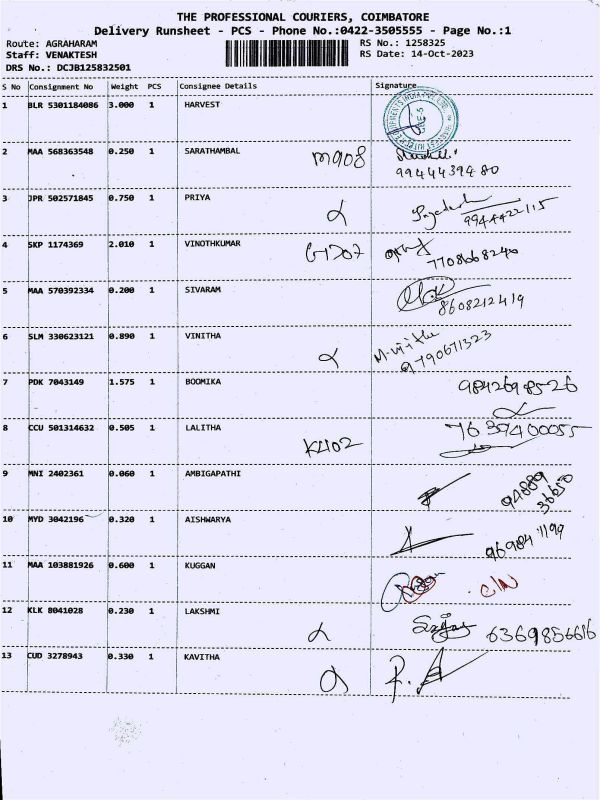 THE PROFESSIONAL COURIERS, COIMBATORE
Delivery Runsheet - PCS - Phone No.:0422-3505555 - Page No.:1
Route: AGRAHARAM
Staff: VENAKTESH
DRS No.: DCJB125832501
RS No.: 1258325
RS Date: 14-Oct-2023
S No Consignment No Weight PCS Consignee Details Signature
1 BLR 5301184086 3.000 1 HARVEST
2 MAA 568363548 0.250 1 SARATHAMBAL M908
9944439480
3 JPR 502571845 0.750 1 PRIYA
9944422115
4 SKP 1174369 2.010 1 VINOTHKUMAR G1707
7708668240
5 MAA 570392334 0.200 1 SIVARAM
8608212419
6 SLM 330623121 0.890 1 VINITHA M-vijitha
9790671323
7 PDK 7043149 1.575 1 BOOMIKA 9842698526
8 CCU 501314632 0.505 1 LALITHA K402 7639400055
9 MNI 2402361 0.060 1 AMBIGAPATHI 94889
36650
10 MYD 3042196 0.320 1 AISHWARYA 9698471199
11 MAA 103881926 0.600 1 KUGGAN
12 KLK 8041028 0.230 1 LAKSHMI 6369856616
13 CUD 3278943 0.330 1 KAVITHA